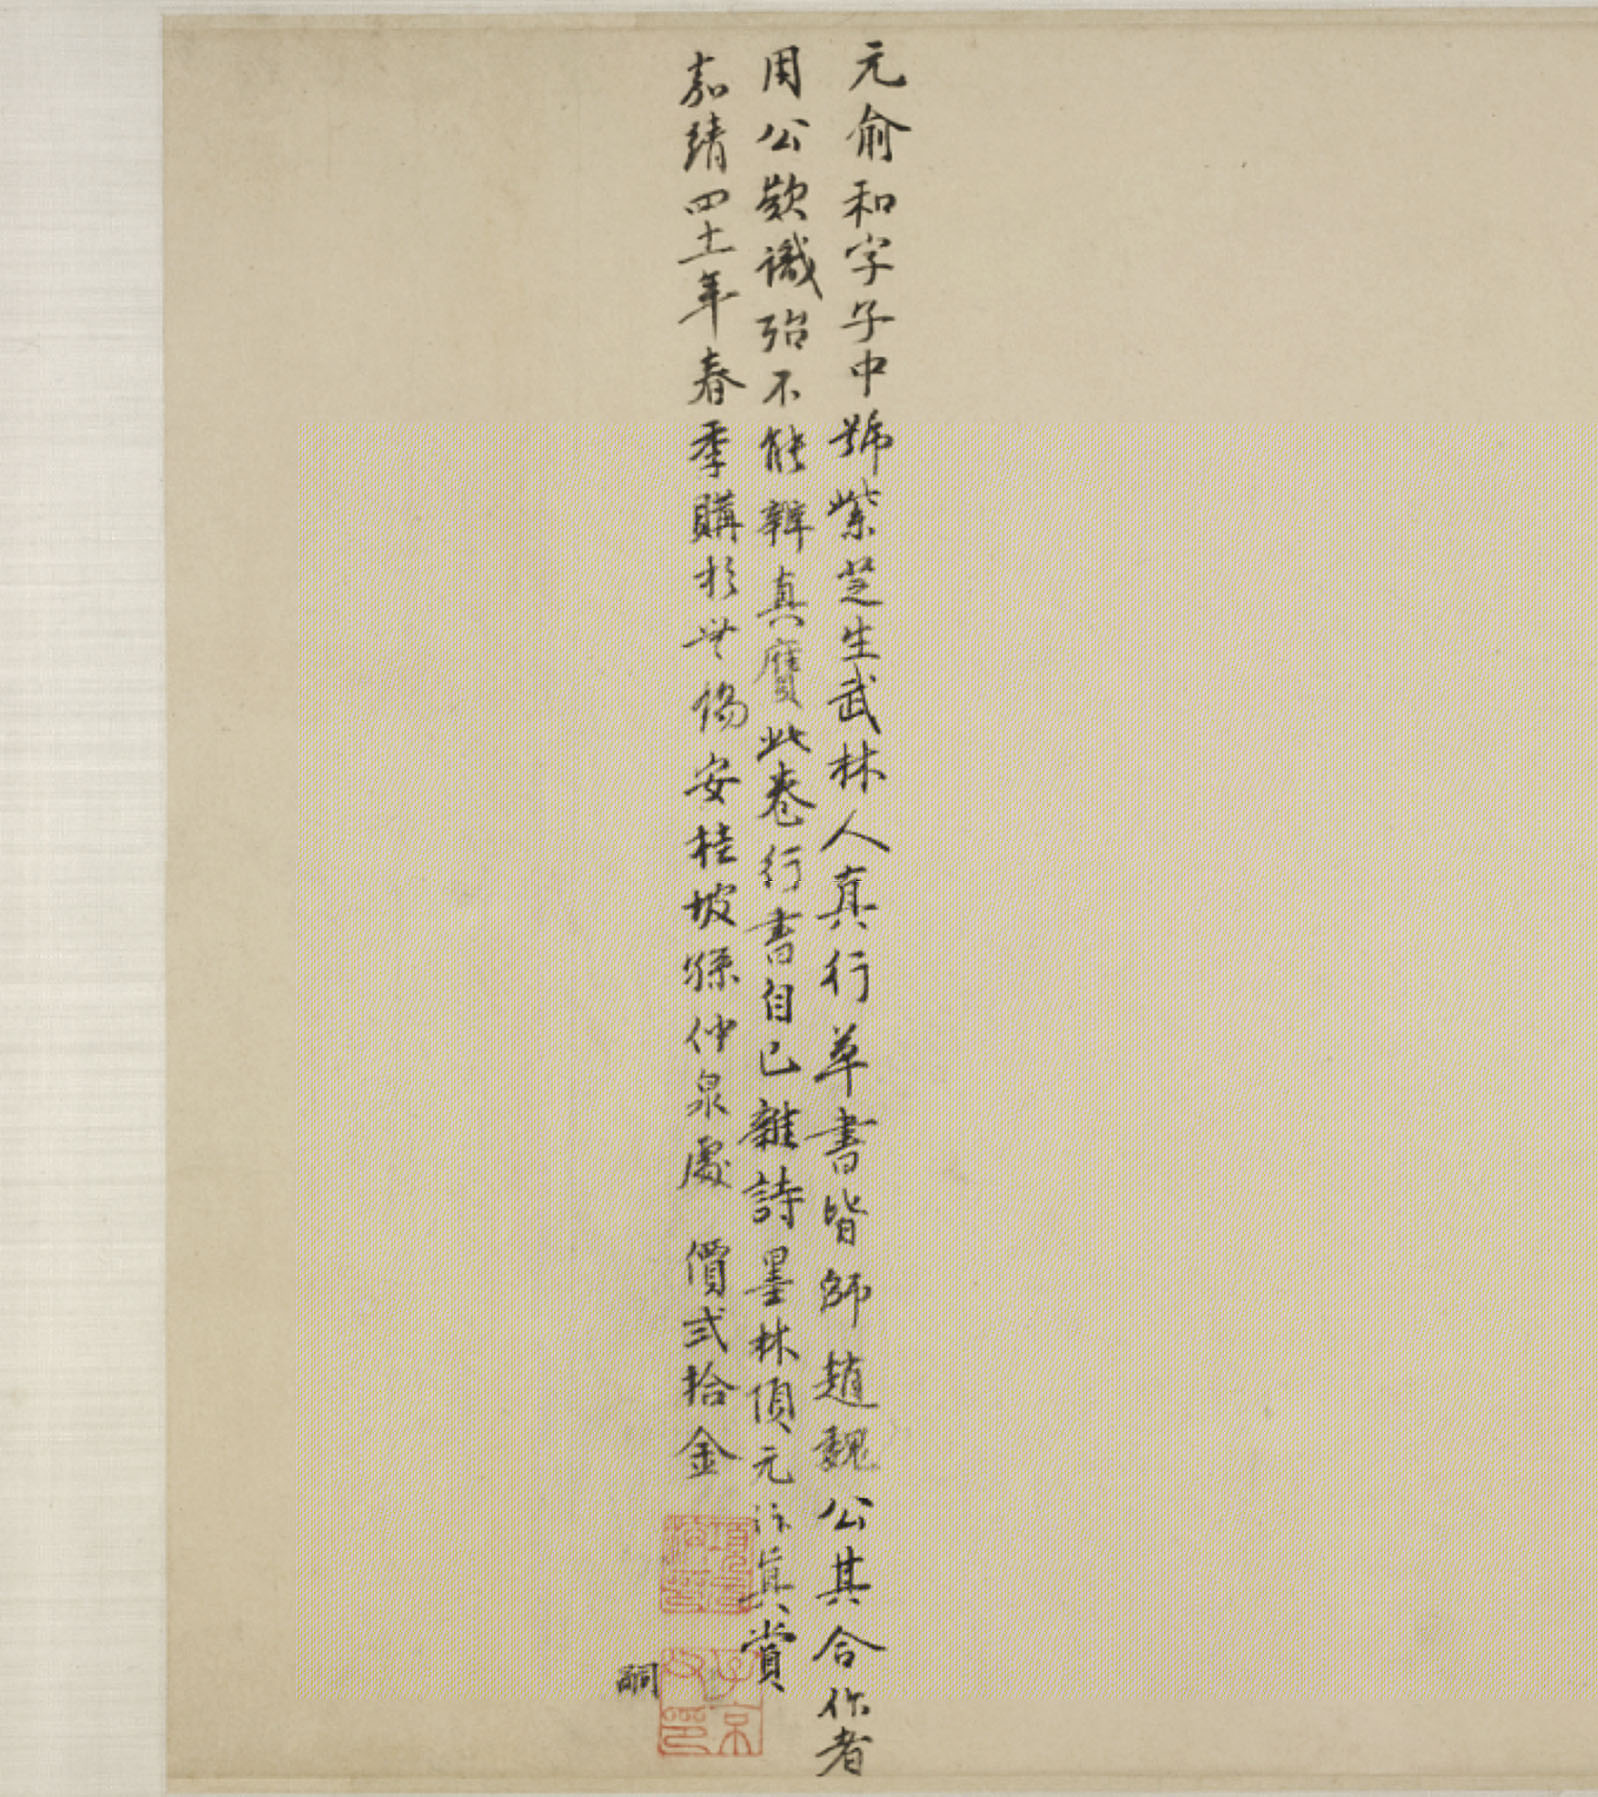 元俞和字子中號紫芝生武林人真行草書皆師趙魏公其合作者
用公欵識殆不能辨真贗此卷行書自己雜詩墨林項元汴真賞
嘉靖四十一年春季購於無錫安桂坡孫仲泉處 價貳拾金
嗣
項元汴印
子京父印